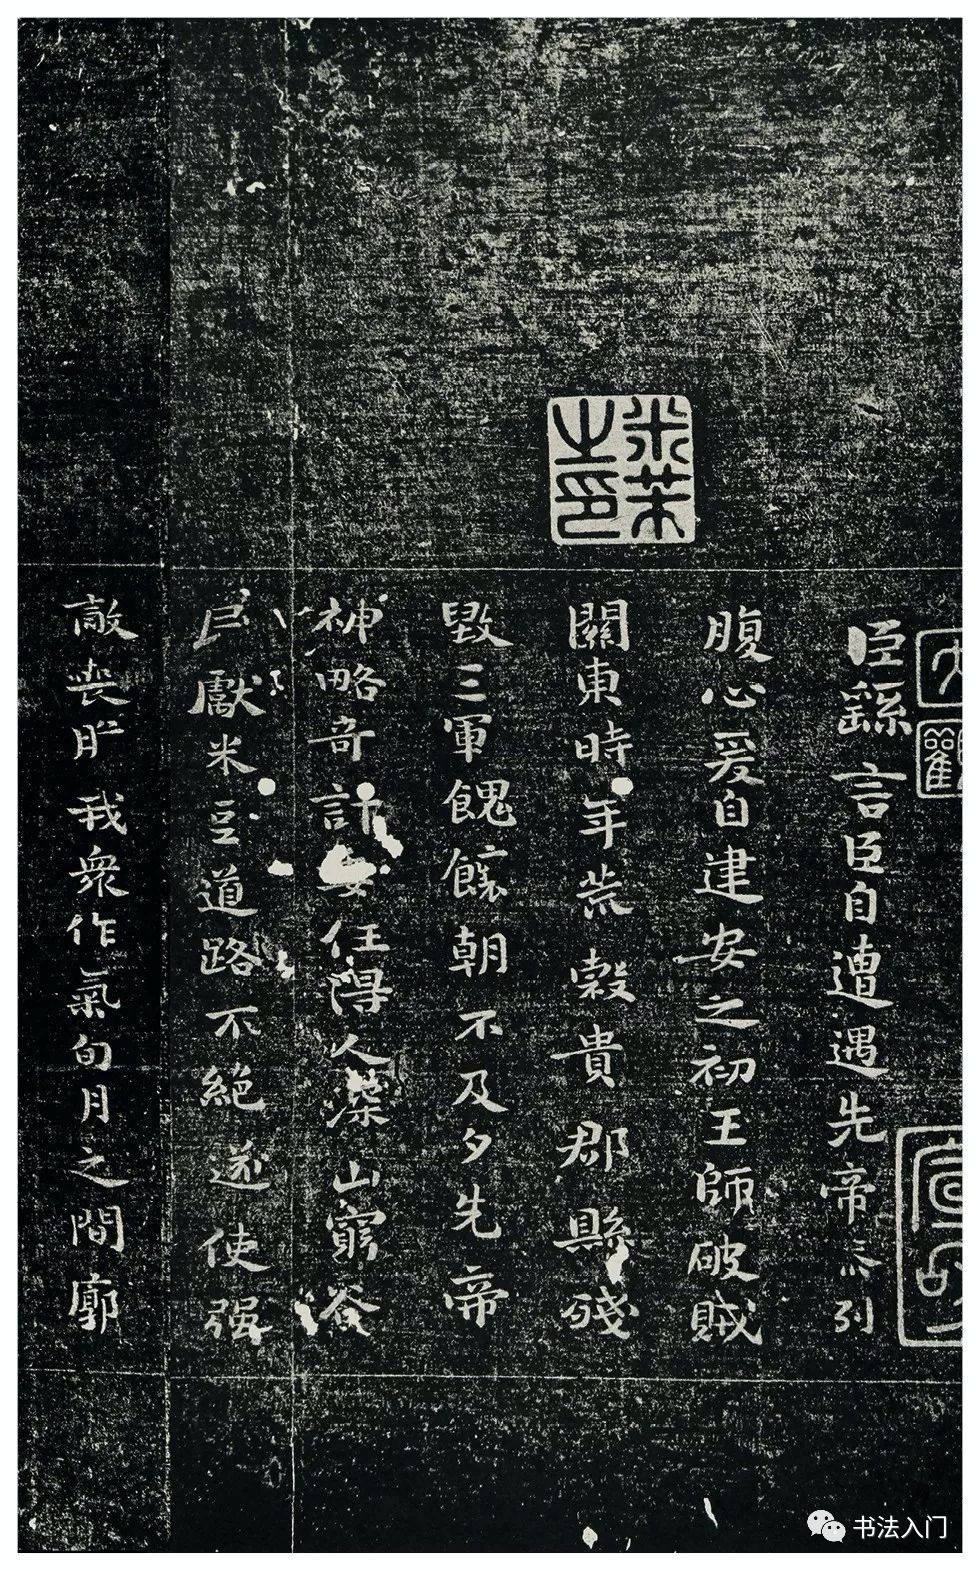 臣繇言臣自遭遇先帝忝列
腹心爰自建安之初王師破賊
關東時年荒穀貴郡縣殘
毀三軍餽饟朝不及夕先帝
神略奇計委任得人深山窮谷
民獻米豆道路不絕遂使强
敵喪膽我衆作氣旬月之間廓
米芾
之印
大觀
书法入门